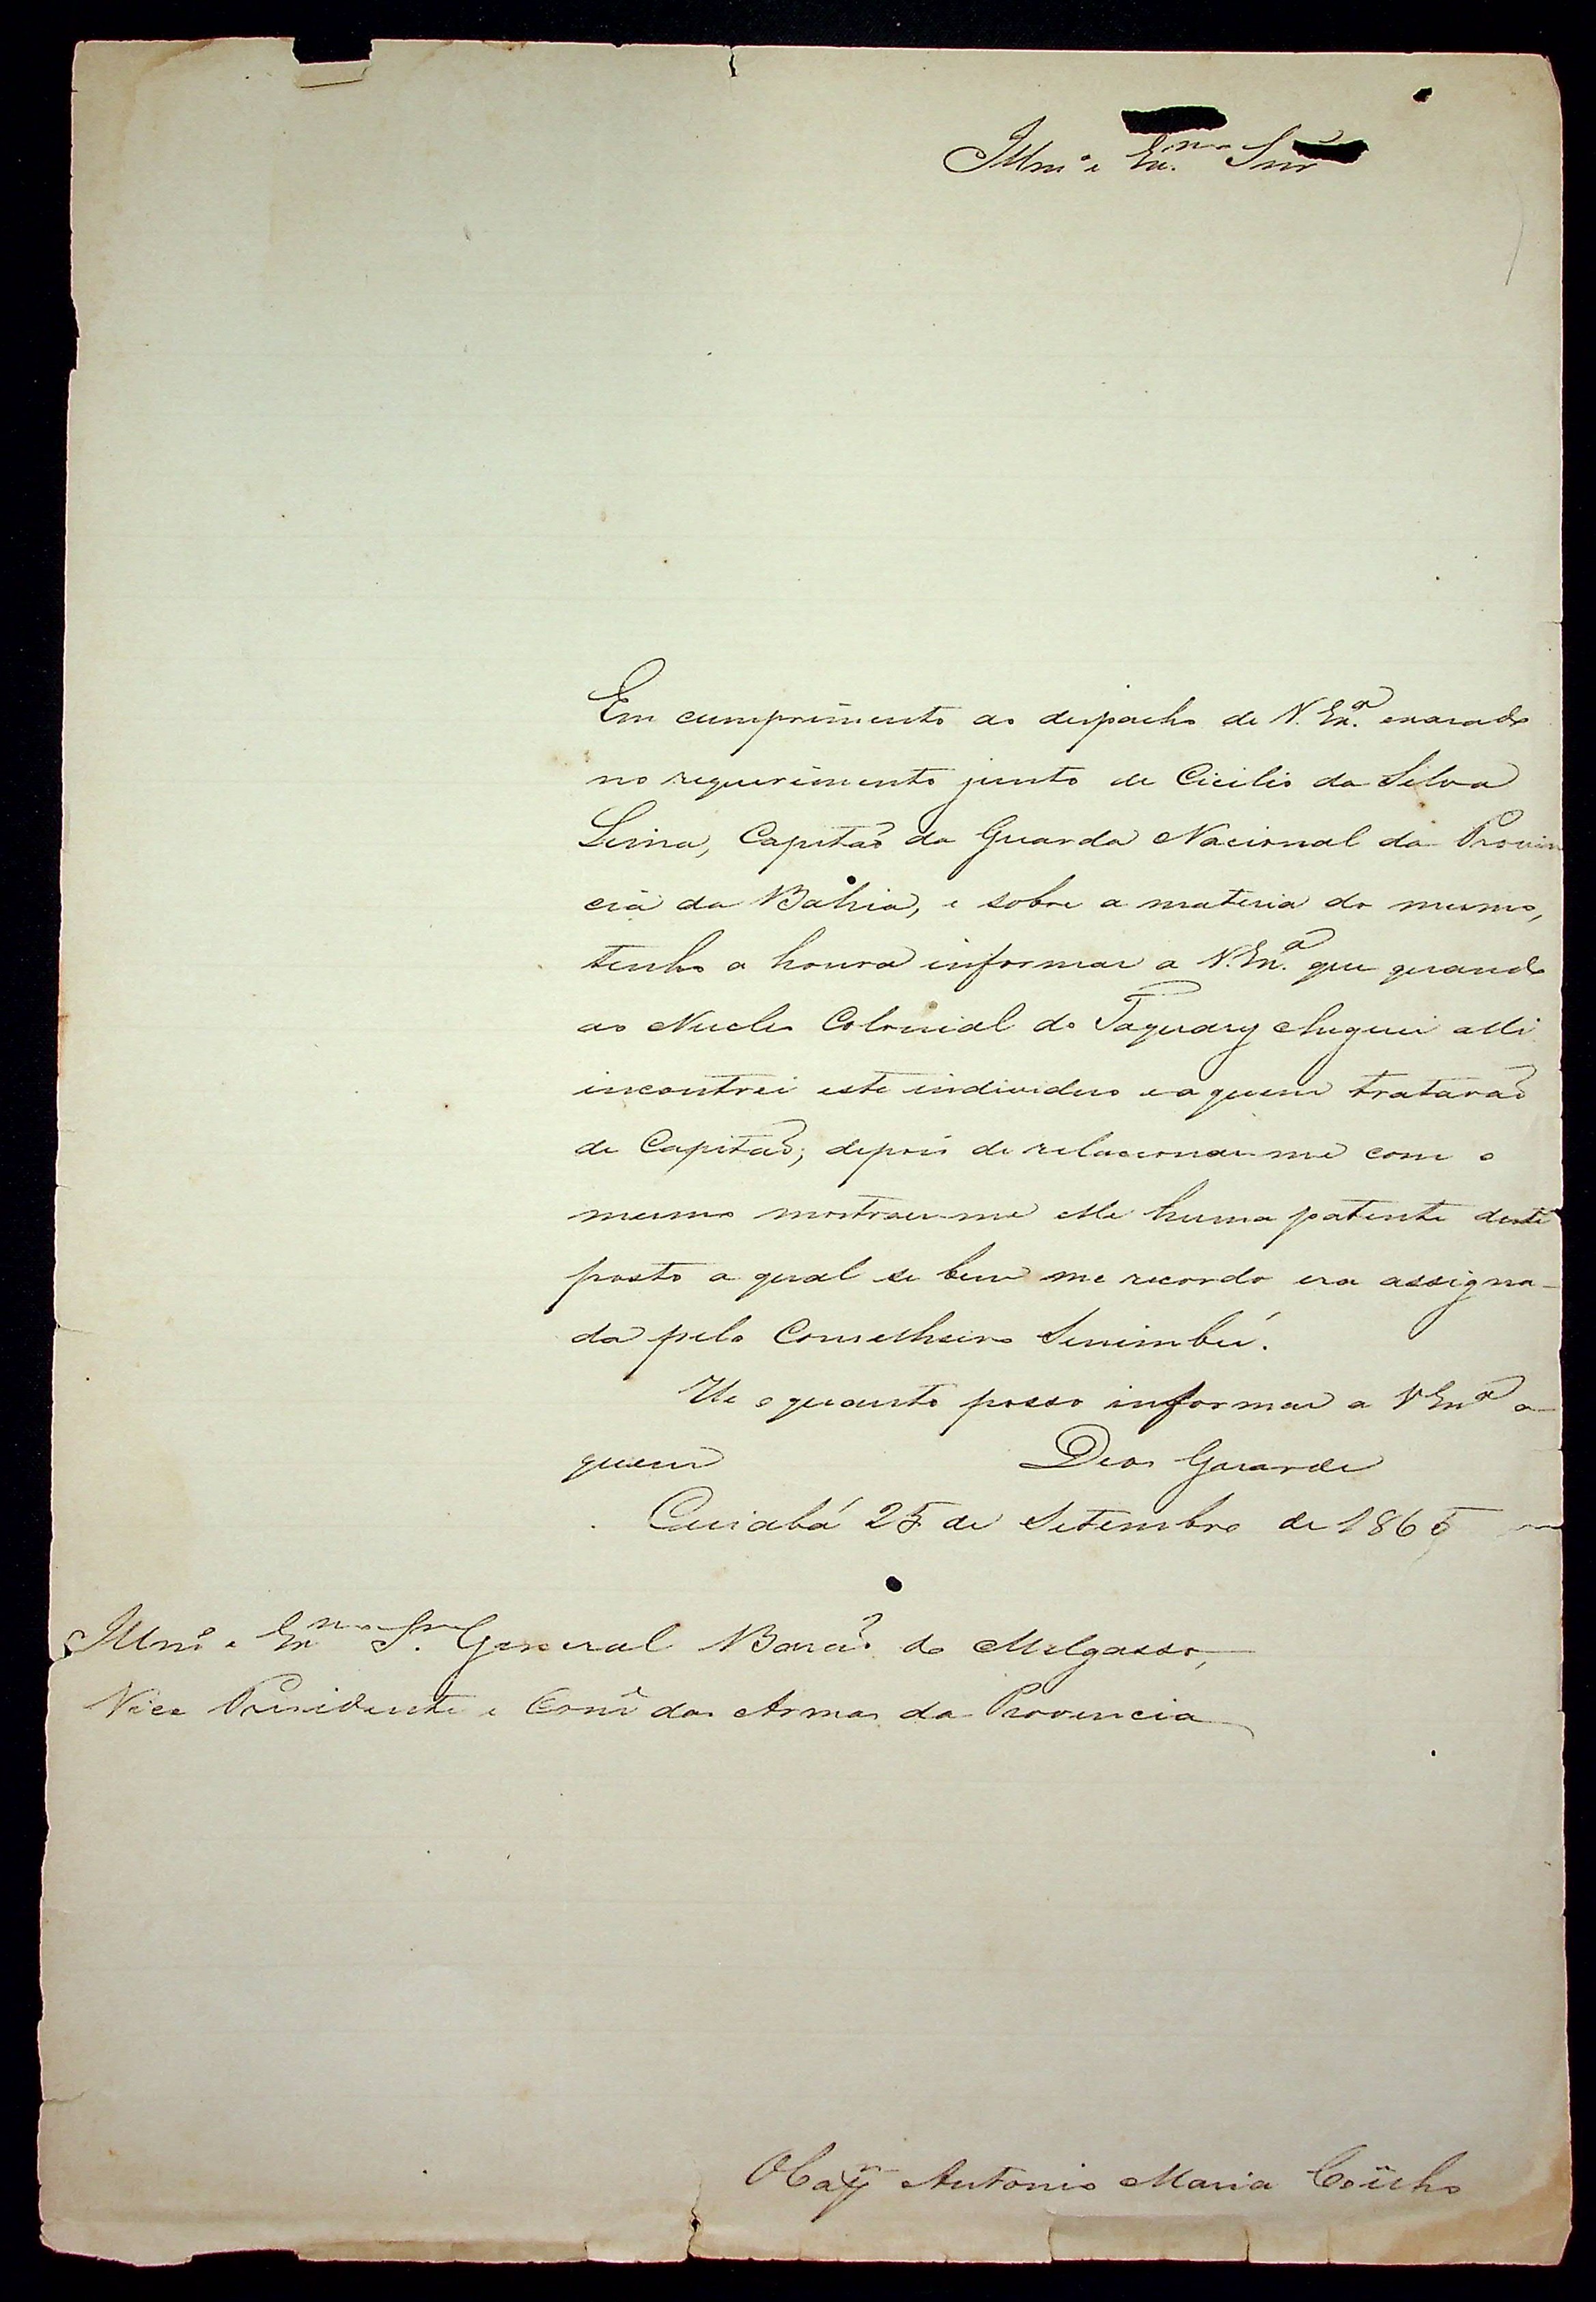 Illmº e Exᵐº Snr
Em cumprimento ao despacho de V. Exª. exarado
no requerimento junto de Cicilio da Silva
Lima, Capitaõ da Guarda Nacional da Provin
cia da Bahia, e sobre a materia do mesmo,
tenho a honra informar a V. Exª. que quando
ao Nucleo Colonial do Taquary cheguei alli
incontrei este individuo e a quem tratavaõ
de Capitaõ; depois de relacionar-me com o
mesmo mostrou-me elle huma patente deste
posto a qual se bem me recordo era assigna-
da pelo Conselheiro Sinimbú.
He o quanto posso informar a V Exª a
quem Deos Guarde
Cuiabá 25 de Setembro de 1865
Illmº e Exᵐº Sr. General Baraõ de Melgasso,
Vice Presidente e Comᵉ das Armas da Provincia
O Capᵐ Antonio Maria Coêlho